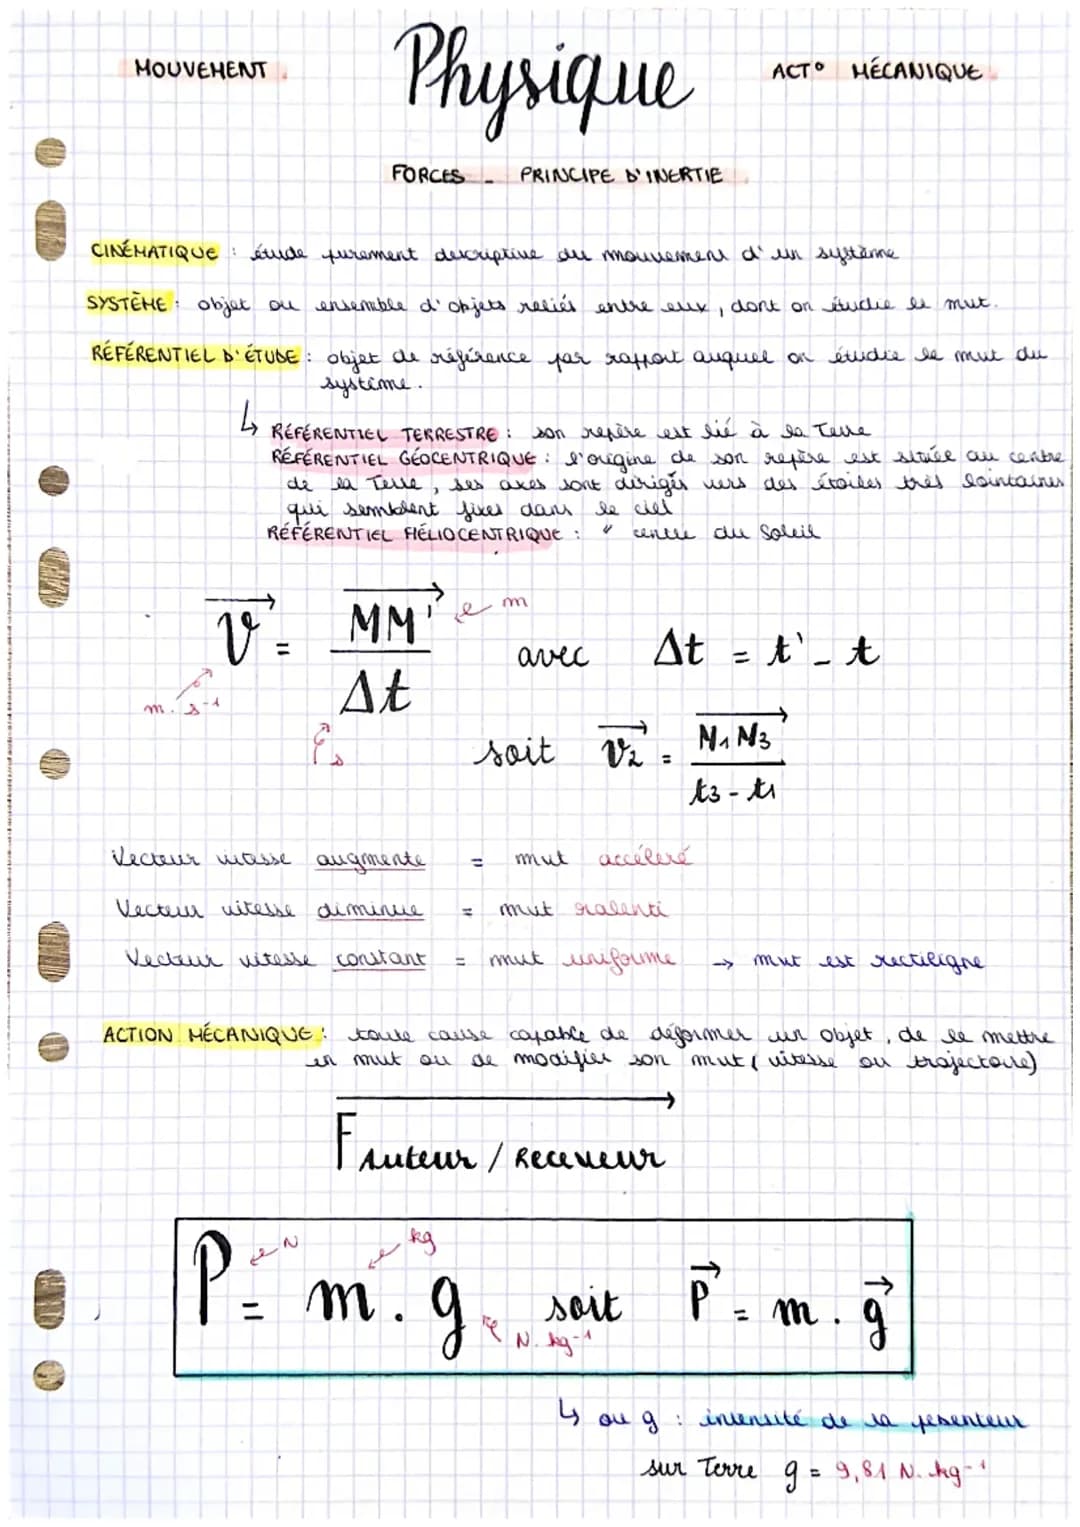 Physique
MOUVEMENT
ACT° MÉCANIQUE
FORCES - PRINCIPE D'INERTIE
CINÉMATIQUE : étude purement descriptive du mouvement d'un système
SYSTÈME : objet ou ensemble d'objets reliés entre eux, dont on étudie le mvt.
RÉFÉRENTIEL D'ÉTUDE : objet de référence par rapport auquel on étudie le mvt du
système.
↳ RÉFÉRENTIEL TERRESTRE : son repère est lié à la Terre
RÉFÉRENTIEL GÉOCENTRIQUE : l'origine de son repère est située au centre
de la Terre, ses axes sont dirigés vers des étoiles très lointaines
qui semblent fixes dans le ciel
RÉFÉRENTIEL HÉLIOCENTRIQUE : " centre du Soleil
v⃗ = MM'⃗ / Δt avec Δt = t' - t
m
m.s-1
s
soit v₂⃗ = M₁M₃⃗ / t₃ - t₁
Vecteur vitesse augmente = mvt accéléré
Vecteur vitesse diminue = mvt ralenti
Vecteur vitesse constant = mvt uniforme → mvt est rectiligne
ACTION MÉCANIQUE : toute cause capable de déformer un objet, de le mettre
en mvt ou de modifier son mvt (vitesse ou trajectoire)
F Auteur / Receveur
P = m . g soit P⃗ = m . g⃗
N
kg
N.kg-1
↳ ou g : intensité de la pesenteur
sur Terre g = 9,81 N.kg-1